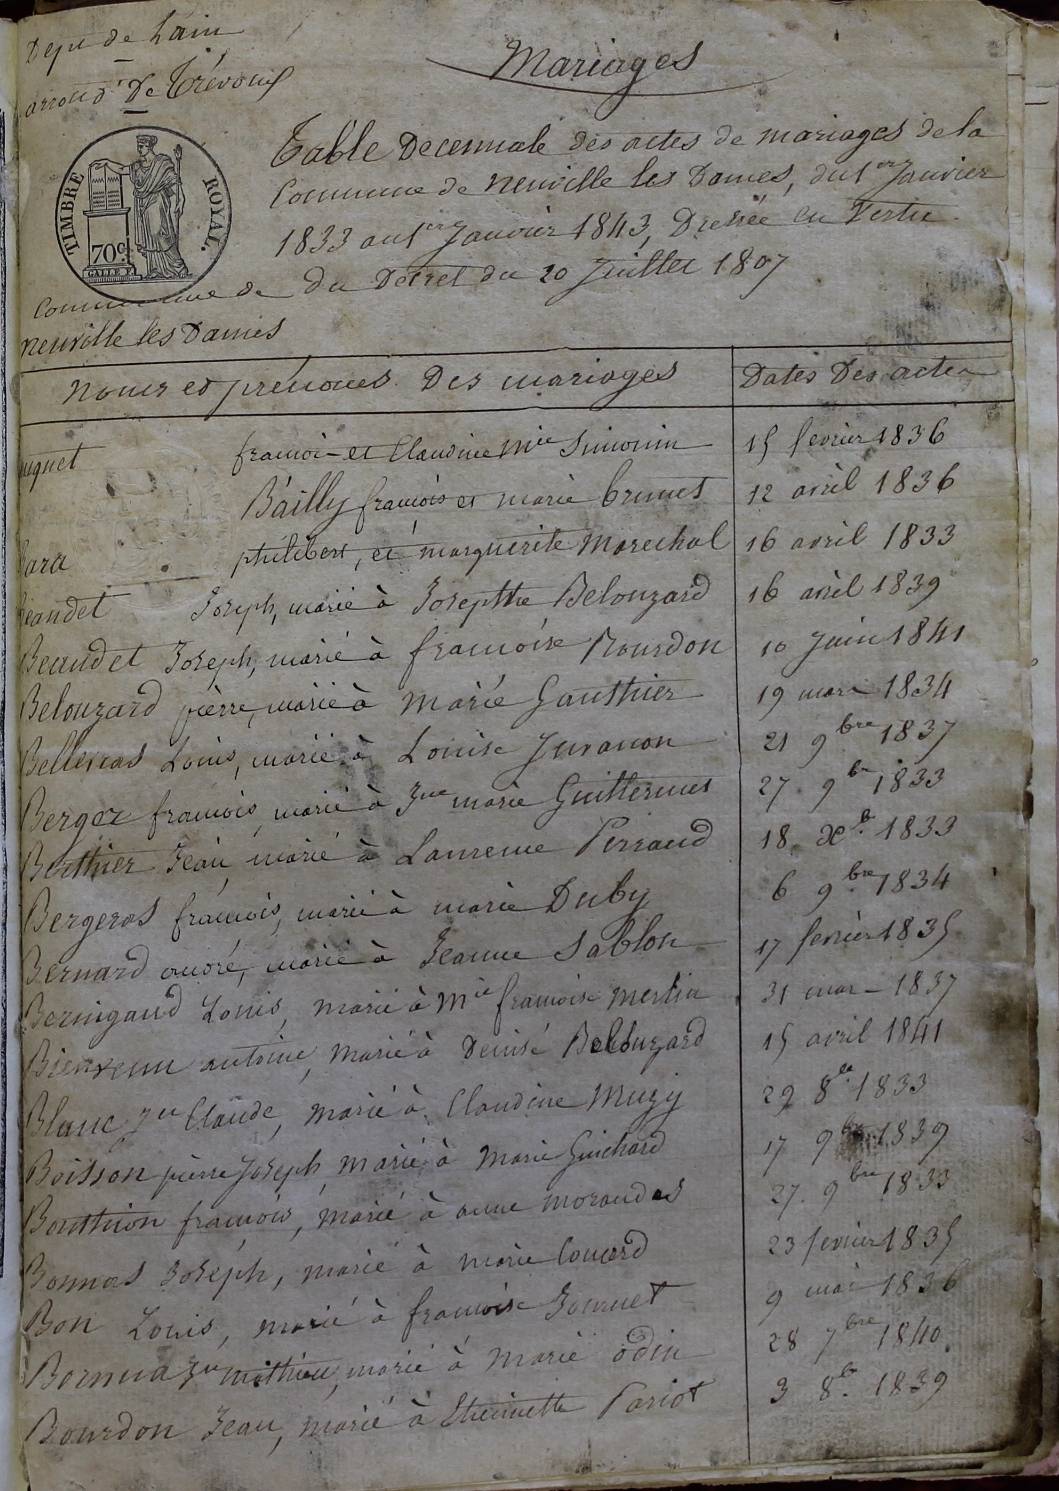 Dept de Lain
arrond.t De Trévoux
Mariages
TIMBRE ROYAL.
70c.
Table Decennale des actes de mariages de la
Commune de Neuville les Dames, du 1er Janvier
1833 au 1er Janvier 1843, Dressée en Vertu
du Décret du 20 Juillet 1807
Commune de
Neuville les Dames
Noms et prénoms Des mariages Dates Des actes
uquet françois et Claudine Mie Simonin 15 fevrier 1836
Bailly françois et marie brunet 12 avril 1836
Bara philibert, et marguerite Marechal 16 avril 1833
Beaudet Joseph, marié à Josephte Belouzard 16 avril 1839
Beaudet Joseph, marié à françoise Bourdon 10 Juin 1841
Belouzard pierre, marié à marie Gauthier 19 mars 1834
Louis, marié à Louise Juvanon 21 9bre 1837
Berger françois, marié à Jne marie Guillermet 27 9b 1833
Berthier Jean, marié à Laurence Perraud 18 Xb. 1833
Bergeras françois, marié à marie Duby 6 9bre 1834
Bernard andré, marié à Jeanne Sablon 17 fevrier 1835
Bernigaud Louis, marié à Mie françoise merlin 31 mars 1837
Bienvenu antoine, marié à Denise Belouzard 15 avril 1841
Blanc Claude, marié à Claudine Muzy 29 8b. 1833
Boisson pierre Joseph, marié à Marie Guichard 17 9b 1839
Bonthion françois, marié à anne morandas 27. 9bre 1833
Bonnas Joseph, marié à marie 23 fevrier 1835
Bon Louis, marié à françoise Journet 9 mai 1836
mathieu, marié à Marie Odin 28 7bre 1840.
Bourdon Jean, marié à Etiennette Pariot 3 8b. 1839